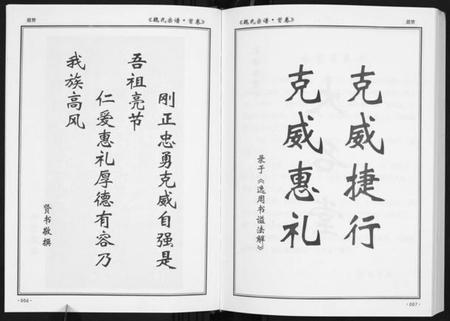 题赞
《魏氏宗谱·首卷》
刚正忠勇克威自强是
吾祖亮节
仁爱惠礼厚德有容乃
我族高风
贤书敬撰
·006·
《魏氏宗谱·首卷》
题赞
克威捷行
克威惠礼
录于《逸周书谥法解》
·007·